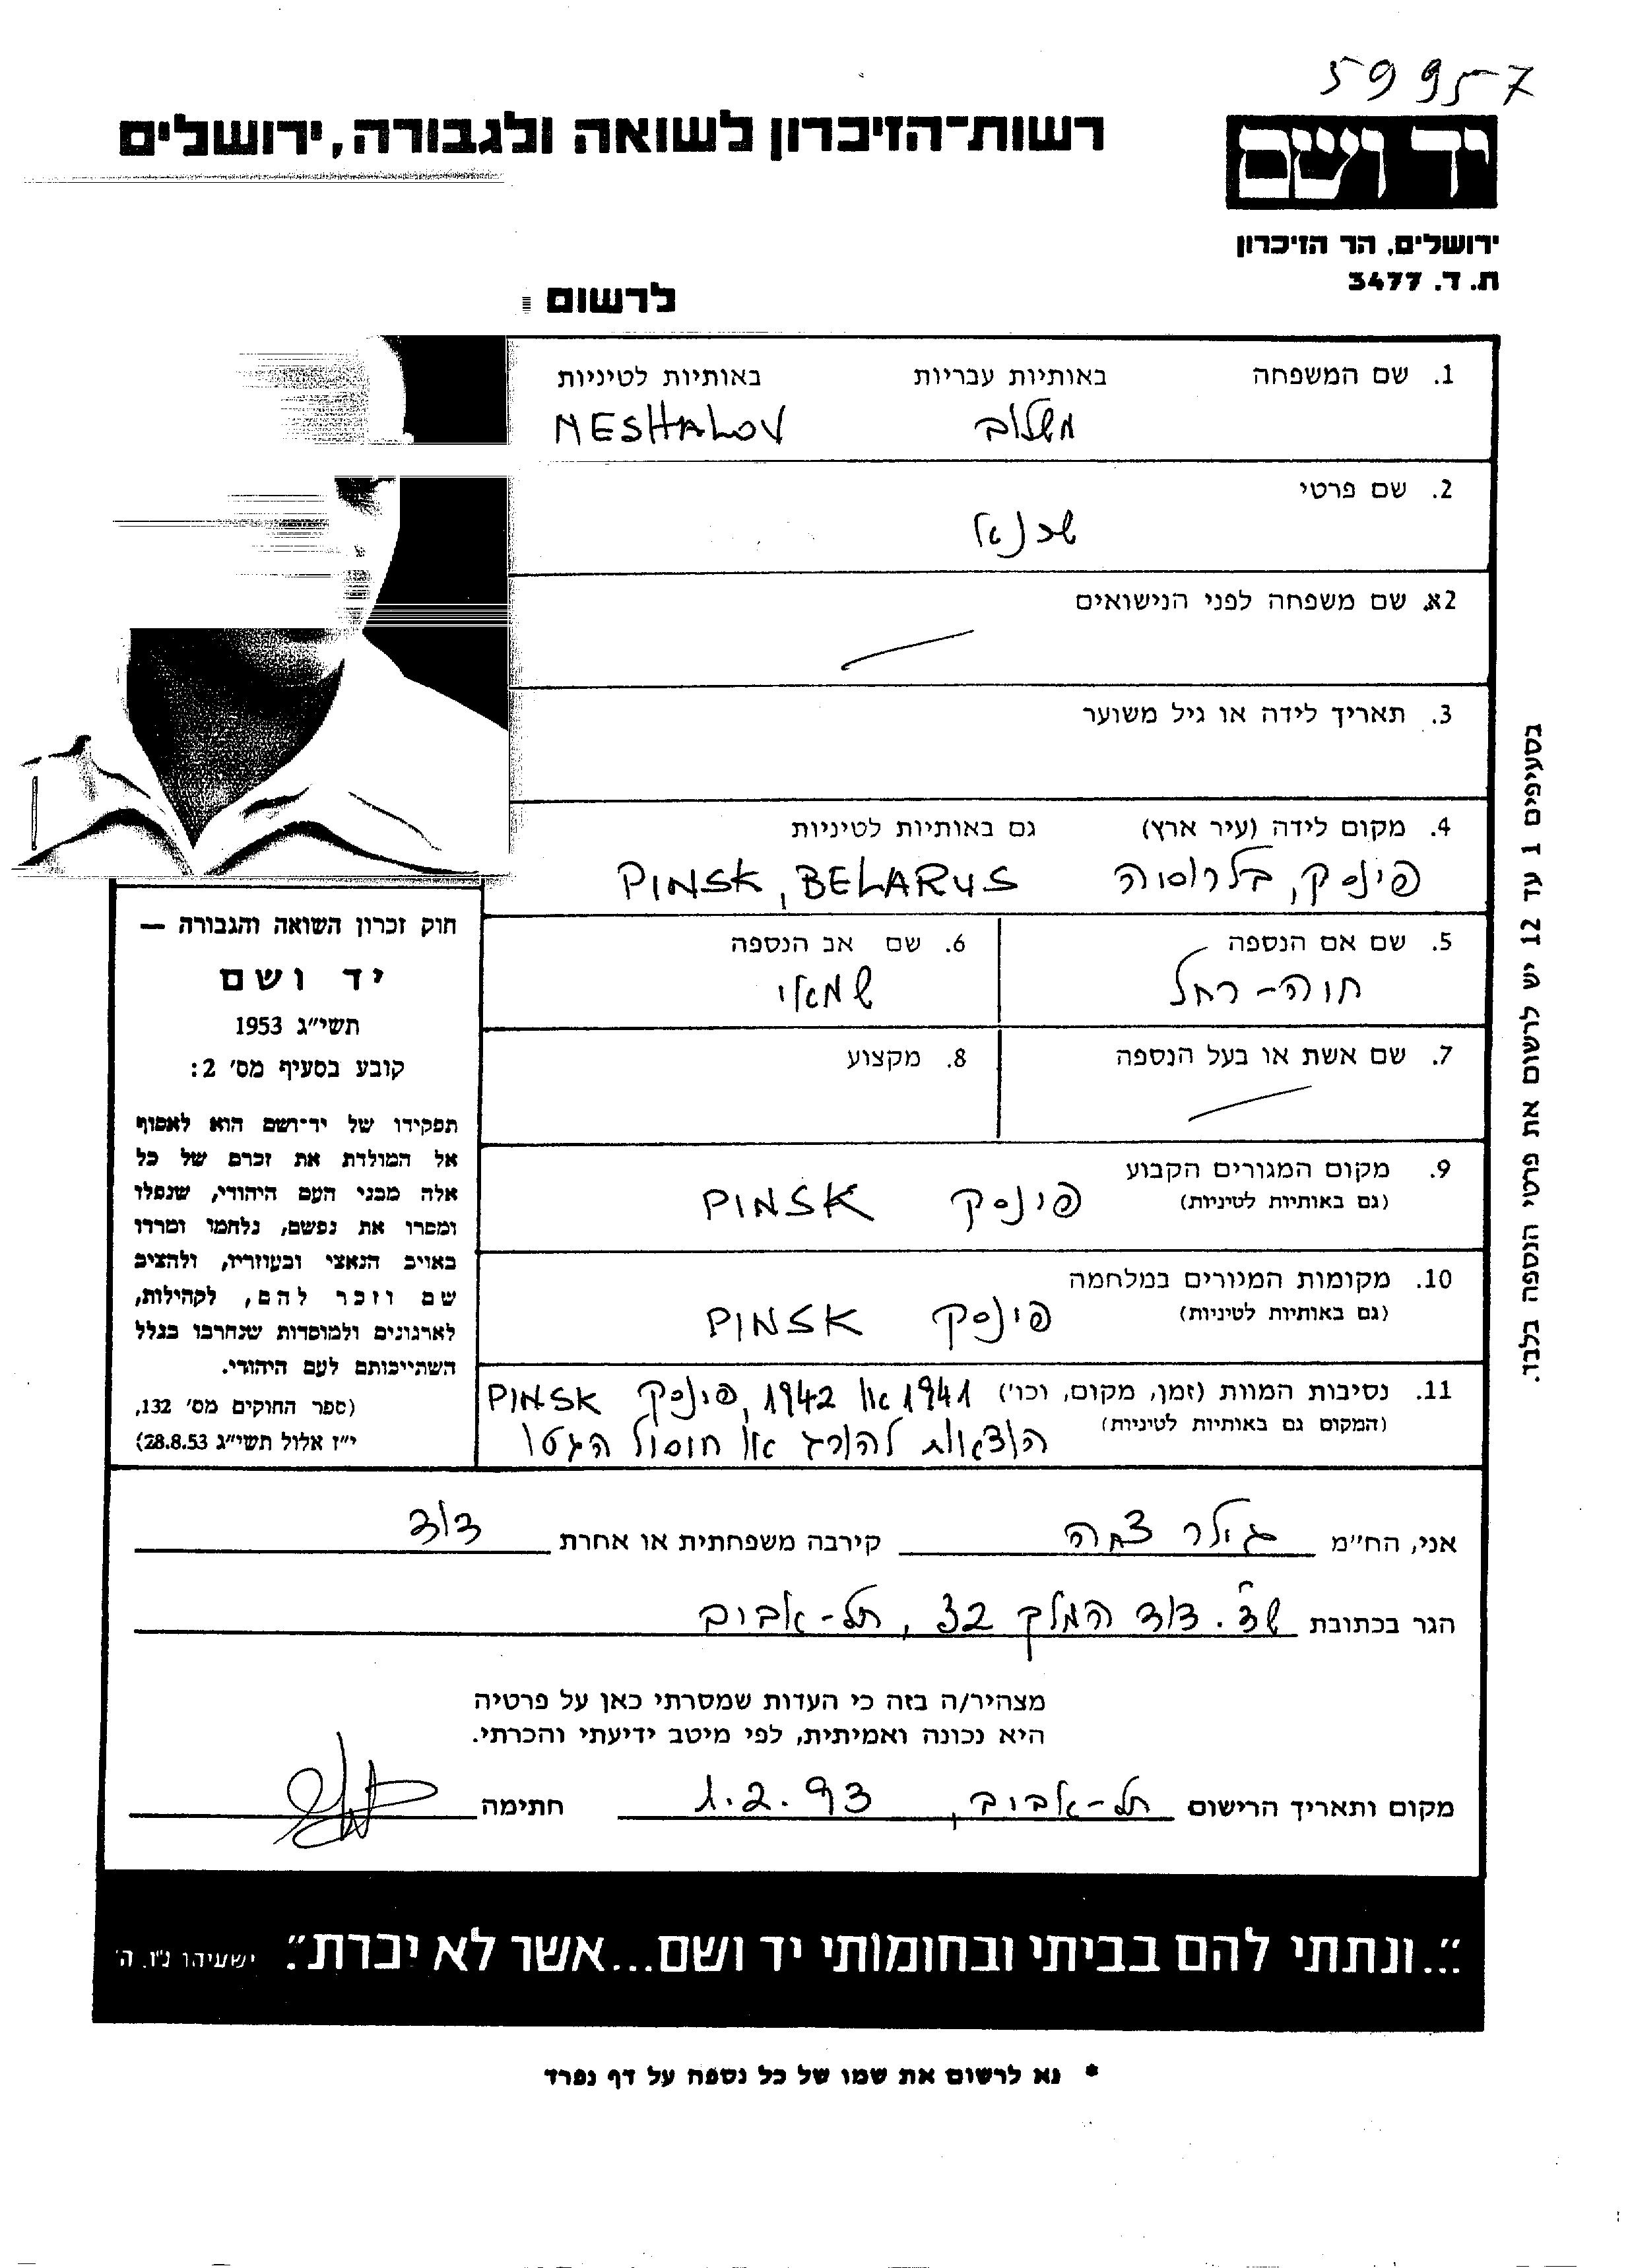 59957
רשות־הזיכרון לשואה ולגבורה, ירושלים
יד ושם
ירושלים, הר הזיכרון
ת. ד. 3477
לרשום
1. שם המשפחה באותיות עבריות באותיות לטיניות
משלוב MESHALOV
2. שם פרטי
שכנא
2א. שם משפחה לפני הנישואים
3. תאריך לידה או גיל משוער
4. מקום לידה (עיר ארץ) גם באותיות לטיניות
פינסק, בלרוסיה PINSK, BELARUS
5. שם אם הנספה 6. שם אב הנספה
חוה-רחל שמאי
7. שם אשת או בעל הנספה 8. מקצוע
9. מקום המגורים הקבוע
(גם באותיות לטיניות) פינסק PINSK
10. מקומות המגורים במלחמה
(גם באותיות לטיניות) פינסק PINSK
11. נסיבות המוות (זמן, מקום, וכו') 1941 או 1942, פינסק PINSK
(המקום גם באותיות לטיניות) הוצאות להורג או חוסול הגטו
חוק זכרון השואה והגבורה —
יד ושם
תשי״ג 1953
קובע בסעיף מס׳ 2:
תפקידו של יד־ושם הוא לאסוף
אל המולדת את זכרם של כל
אלה מבני העם היהודי, שנפלו
ומסרו את נפשם, נלחמו ומרדו
באויב הנאצי ובעוזריו, ולהציב
שם וזכר להם, לקהילות,
לארגונים ולמוסדות שנחרבו בגלל
השתייכותם לעם היהודי.
(ספר החוקים מס׳ 132,
י״ז אלול תשי״ג 28.8.53)
בסעיפים 1 עד 12 יש לרשום את פרטי הנספה בלבד.
אני, הח״מ גילר צמה קירבה משפחתית או אחרת דוד
הגר בכתובת שד. דוד המלך 32, תל-אביב
מצהיר/ה בזה כי העדות שמסרתי כאן על פרטיה
היא נכונה ואמיתית, לפי מיטב ידיעתי והכרתי.
מקום ותאריך הרישום תל-אביב, 1.2.93 חתימה
״...ונתתי להם בביתי ובחומותי יד ושם...אשר לא יכרת״. ישעיהו נ״ו, ה׳
* נא לרשום את שמו של כל נספה על דף נפרד